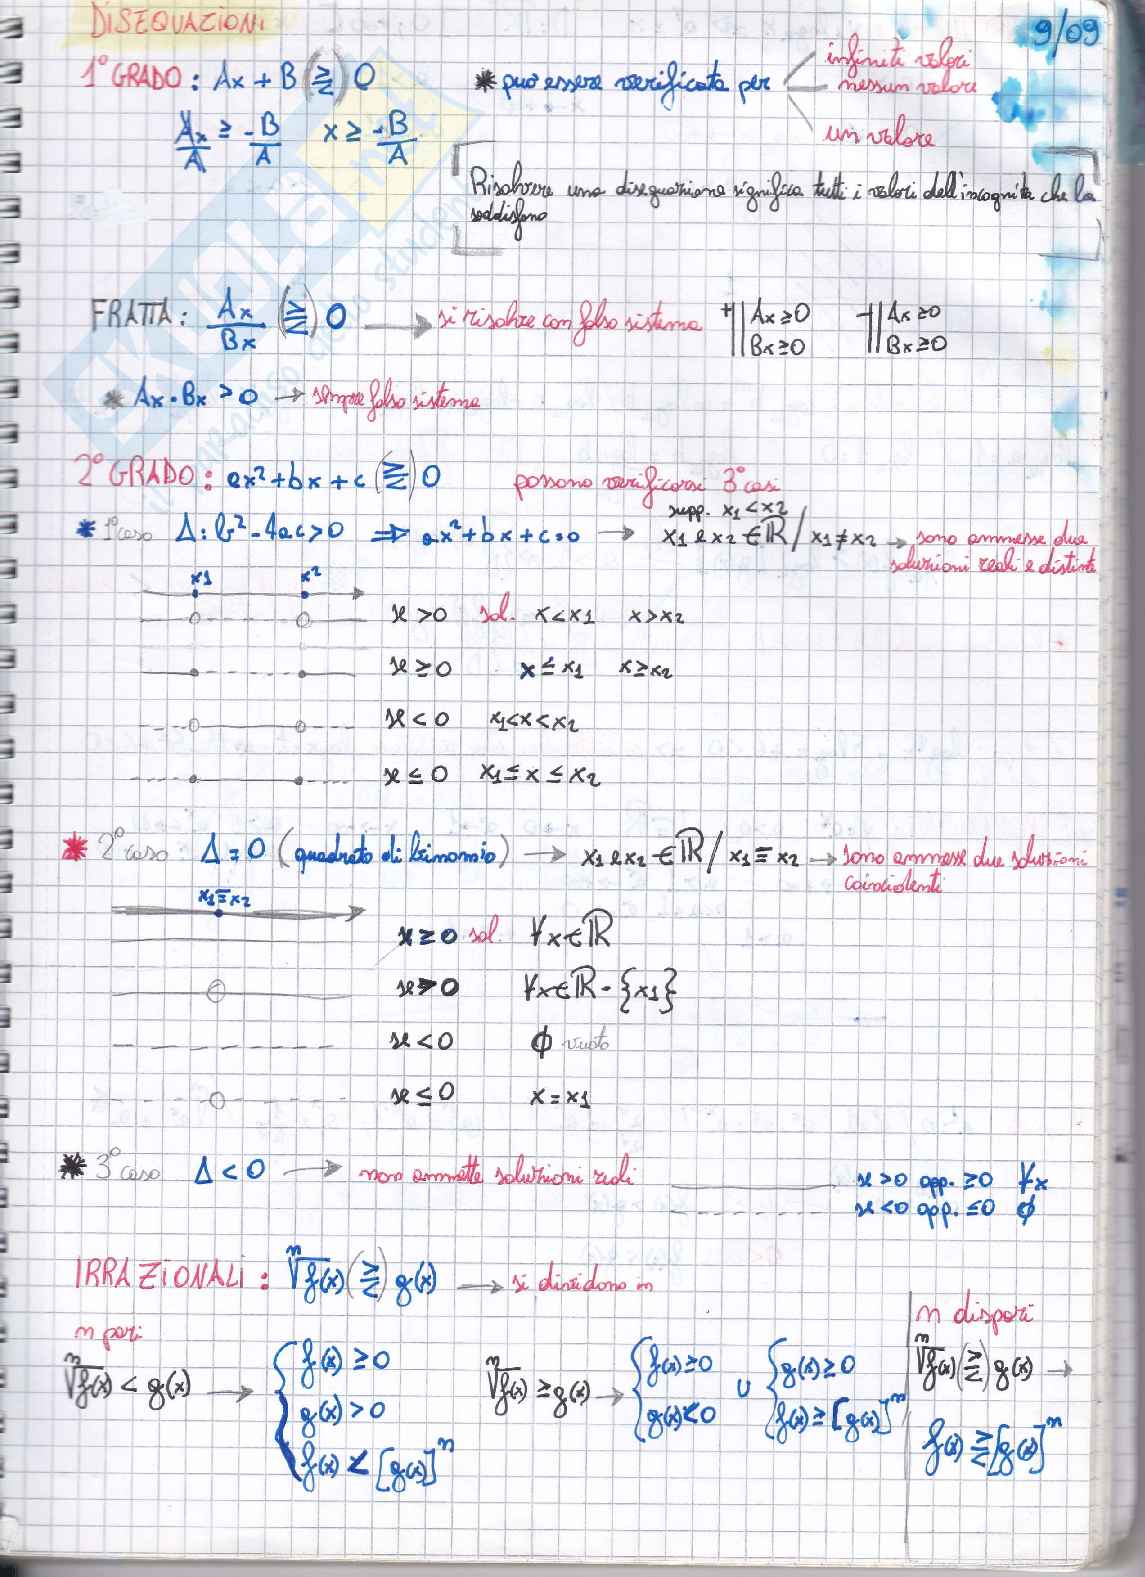 DISEQUAZIONI
9/09
1° GRADO: Ax + B (⋛) 0
* può essere verificata per
infiniti valori
nessun valore
un valore
Ax/A ≥ -B/A  x ≥ -B/A
Risolvere una disequazione significa tutti i valori dell'incognita che la
soddisfano
FRATTA: Ax/Bx (⋛) 0 → si risolve con falso sistema
+ || Ax ≥ 0  - || Ax ≥ 0
|| Bx ≥ 0  || Bx ≥ 0
* Ax · Bx > 0 → sempre falso sistema
2° GRADO: ax² + bx + c (⋛) 0  possono verificarsi 3° casi
supp. x1 < x2
* 1° caso Δ: b² - 4ac > 0 ⇒ ax² + bx + c = 0 → x1 e x2 ∈ ℝ / x1 ≠ x2 → sono ammesse due
soluzioni reali e distinte
x1  x²
se > 0 sol. x < x1  x > x2
se ≥ 0  x ≤ x1  x ≥ x2
se < 0  x1 < x < x2
se ≤ 0  x1 ≤ x ≤ x2
* 2° caso: Δ = 0 (quadrato di binomio) → x1 e x2 ∈ ℝ / x1 ≡ x2 → sono ammesse due soluzioni
coincidenti
x1 ≡ x2
x ≥ 0 sol. ∀x ∈ ℝ
se > 0  ∀x ∈ ℝ - {x1}
se < 0  ϕ vuoto
se ≤ 0  x = x1
* 3° caso Δ < 0 → non ammette soluzioni reali
se > 0 opp. ≥ 0 ∀x
se < 0 opp. ≤ 0 ϕ
IRRAZIONALI: ⁿ√f(x) (⋛) g(x) → si dividono in
n pari
ⁿ√f(x) < g(x) → { f(x) ≥ 0
g(x) > 0
f(x) < [g(x)]ⁿ
ⁿ√f(x) ≥ g(x) → { f(x) ≥ 0  ∪ { g(x) ≥ 0
g(x) < 0  f(x) ≥ [g(x)]ⁿ
n dispari
ⁿ√f(x) (⋛) g(x) →
f(x) ⋛ [g(x)]ⁿ
SKUOLA.net